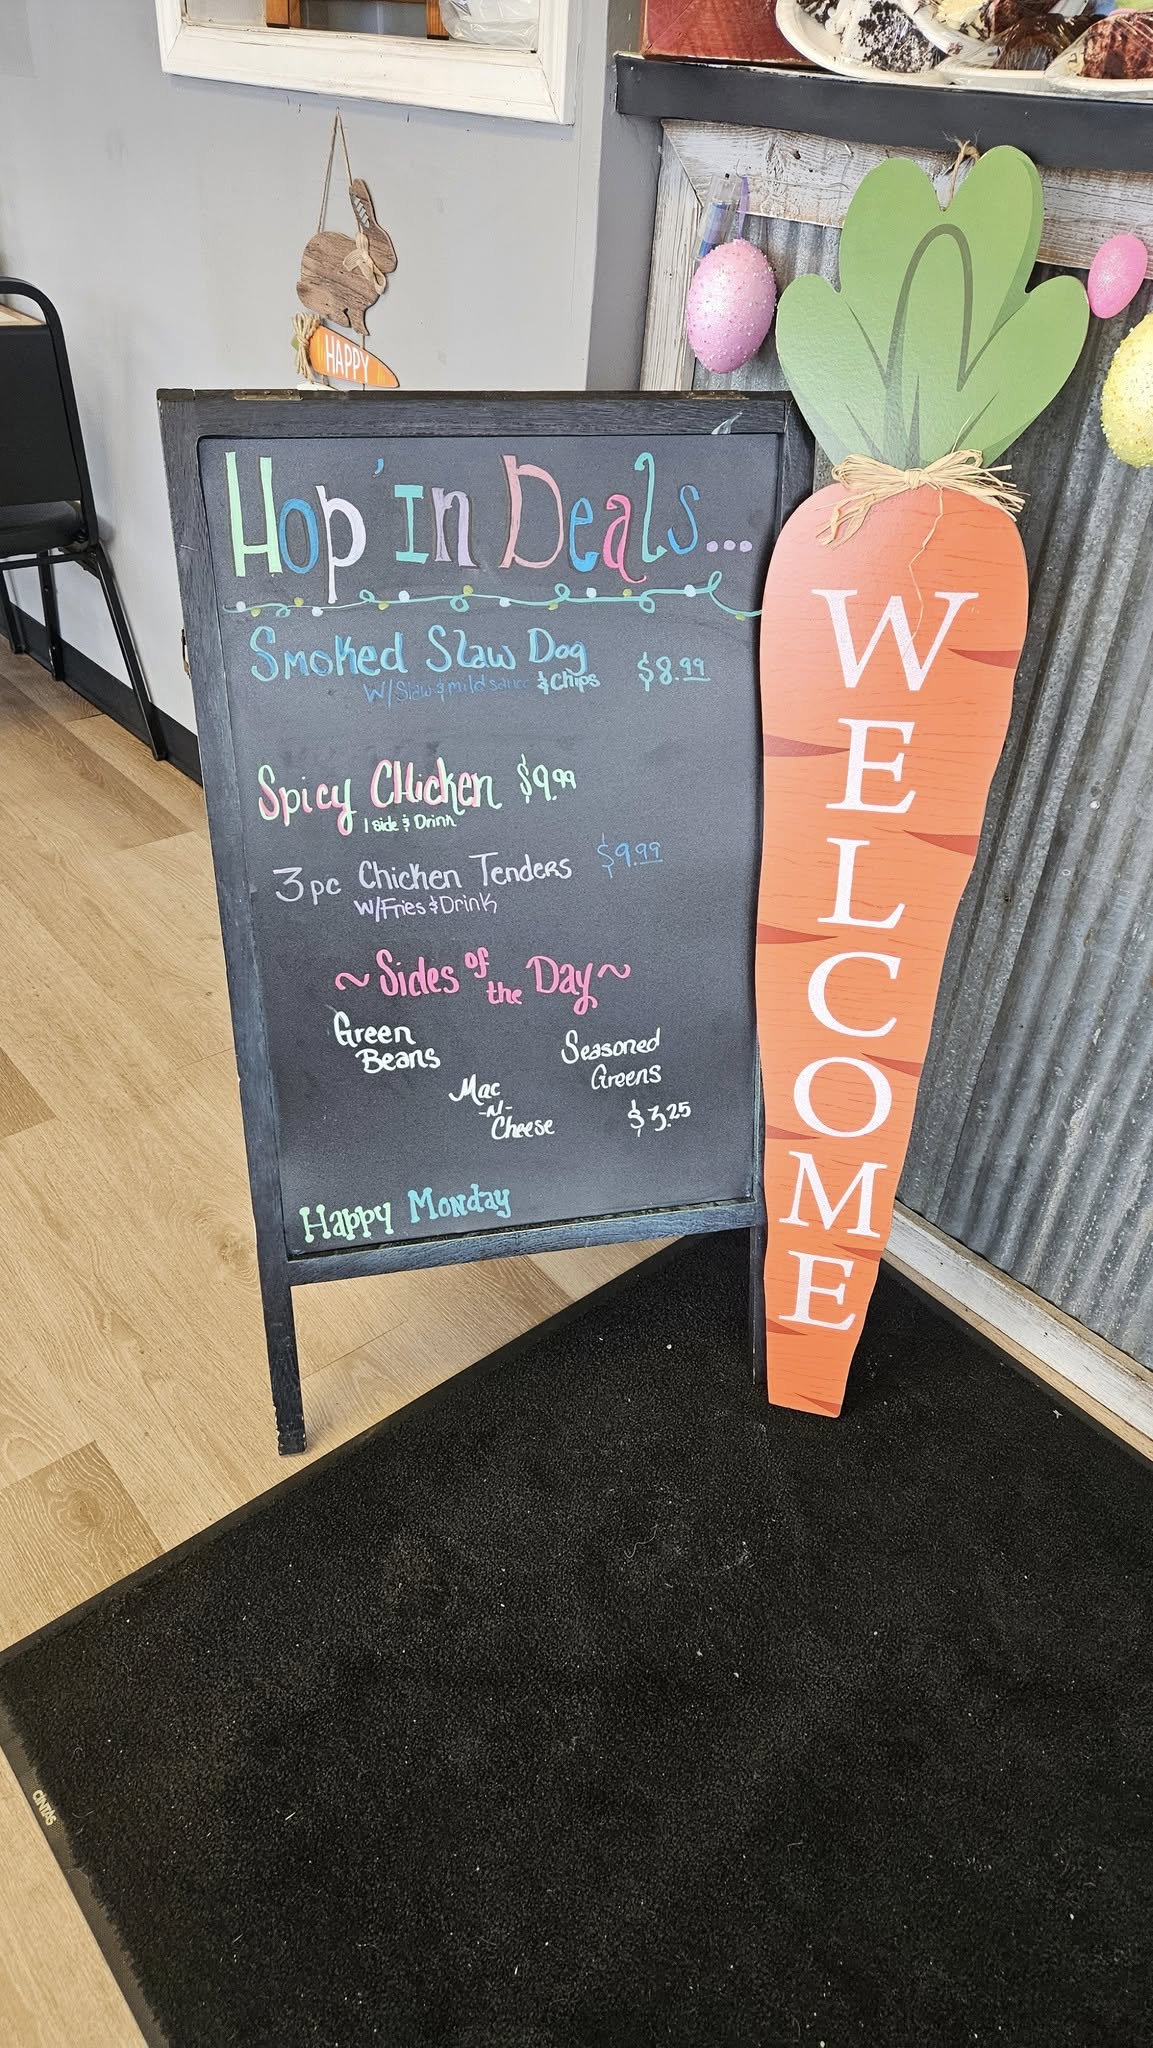 HAPPY
Hop'in Deals...
Smoked Slaw Dog $8.99
W/Slaw & mild sauce & Chips
Spicy CHicken $9.99
1 side & Drink
3pc Chicken Tenders $9.99
W/Fries & Drink
~Sides of the Day~
Green
Beans
Seasoned
Greens
Mac
-N-
Cheese
$3.25
Happy Monday
WELCOME
CINTAS